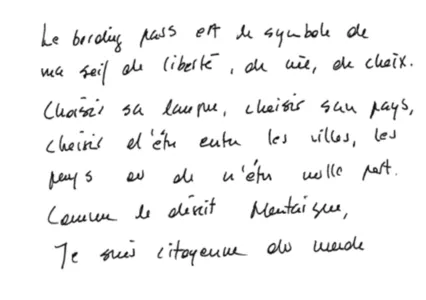 Le bording pass est le symbole de
ma soif de liberté, de vie, de choix.
Choisir sa langue, choisir son pays,
choisir d'être entre les villes, les
pays ou de n'être nulle part.
Comme le disait Montaigne,
Je suis citoyenne du monde